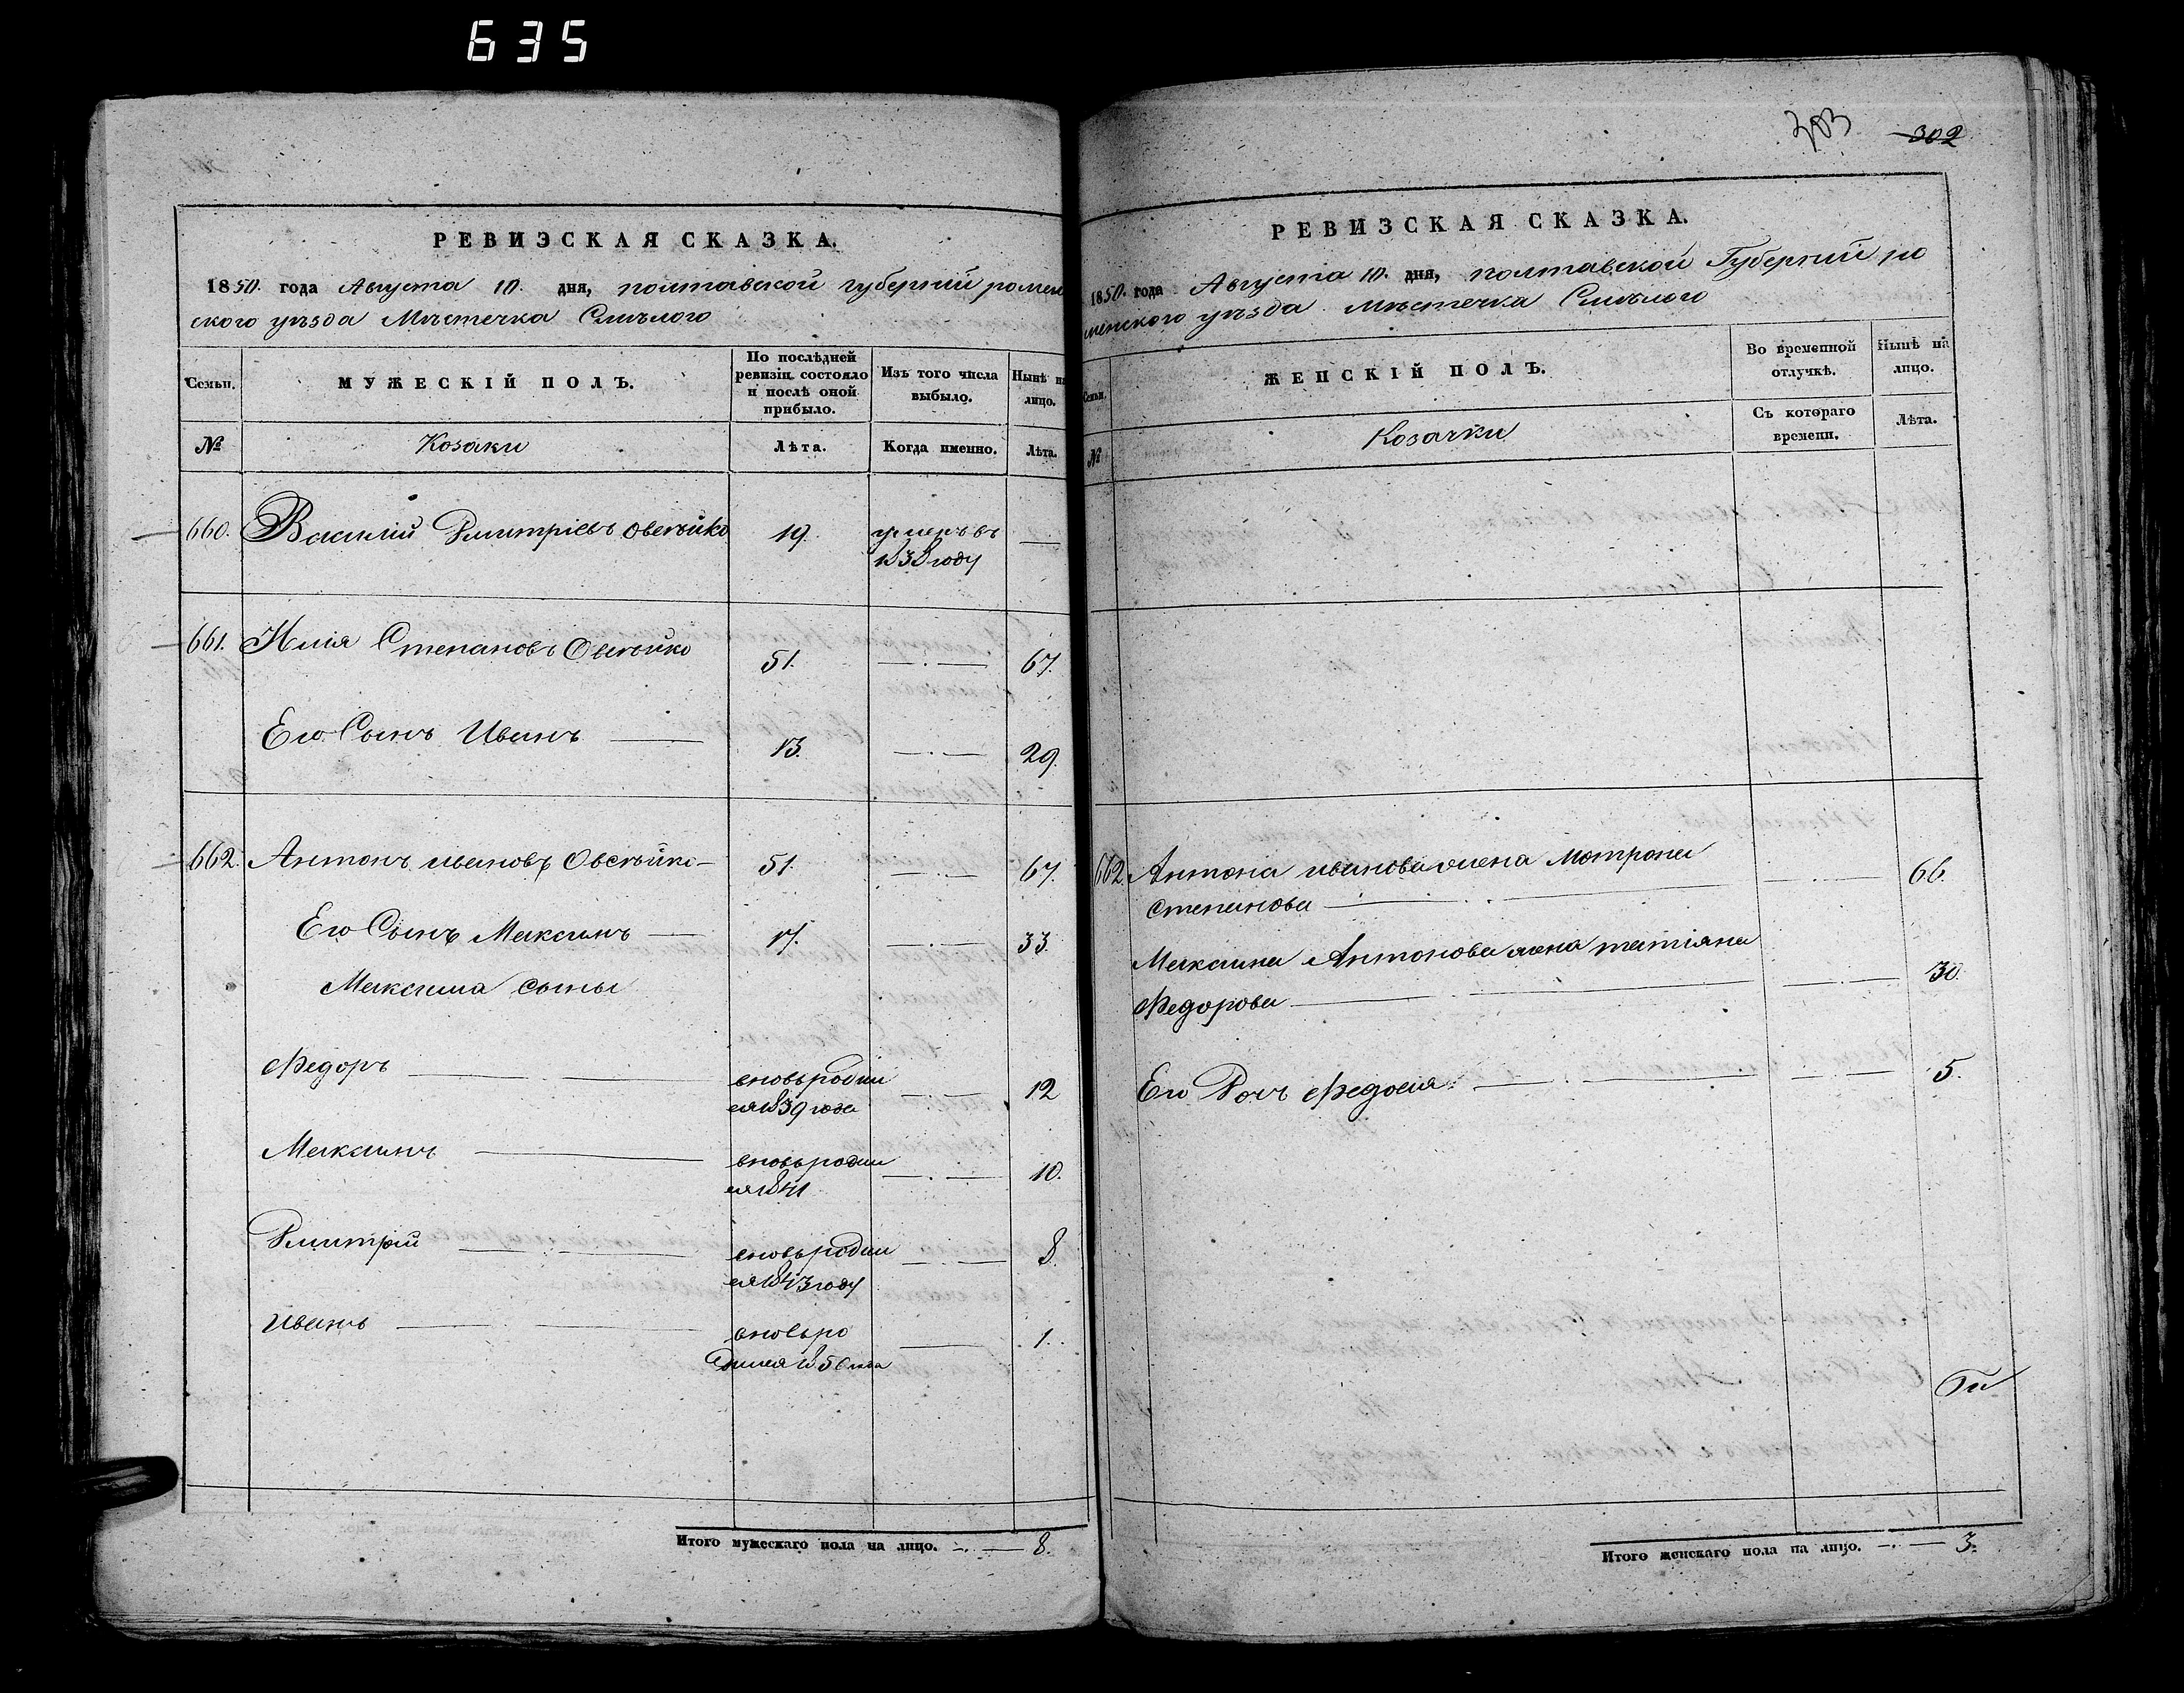 635
РЕВИЗСКАЯ СКАЗКА.
1850. года Августа 10. дня, полтавской губерніи ромен
ского уѣзда Мѣстечка Смѣлого
Семьи.
МУЖЕСКІЙ ПОЛЪ.
По послѣдней
ревизіи состояло
и послѣ оной
прибыло.
Изъ того числа
выбыло.
Нынѣ на
лицо.
№
Козаки
Лѣта.
Когда именно.
Лѣта.
660. Василій Дмитріевъ Овсѣйко 19. умеръ въ —
1838 году
661. Илія Степановъ Овсѣйко 51. —·— 67.
Его Сынъ Иванъ — 13. —·— 29.
662. Антонъ ивановъ Овсѣйко — 51. —·— 67.
Его Сынъ Максимъ — 17. —·— 33.
Максима сыны
Федоръ — вновь роди —·— 12
ся 1839 года
Максимъ — вновь роди —·— 10.
ся 1841
Дмитрій — вновь роди —·— 8.
ся 1843 году
Иванъ — вновь ро — 1.
дился 1850 года
Итого мужескаго пола на лицо. —·— 8.
303 302
РЕВИЗСКАЯ СКАЗКА.
1850. года Августа 10. дня, полтавской Губерніи ро
менского уѣзда Мѣстечка Смѣлого
Семьи.
ЖЕНСКІЙ ПОЛЪ.
Во временной
отлучкѣ.
Нынѣ на
лицо.
№
Козачки
Съ котораго
времени.
Лѣта.
662. Антона иванова жена Мотрона
Степанова — —·— 66.
Максима Антонова жена татіяна
Федорова — —·— 30.
Его Дочь Федосія — —·— 5.
Итого женскаго пола на лицо. —·— 3.